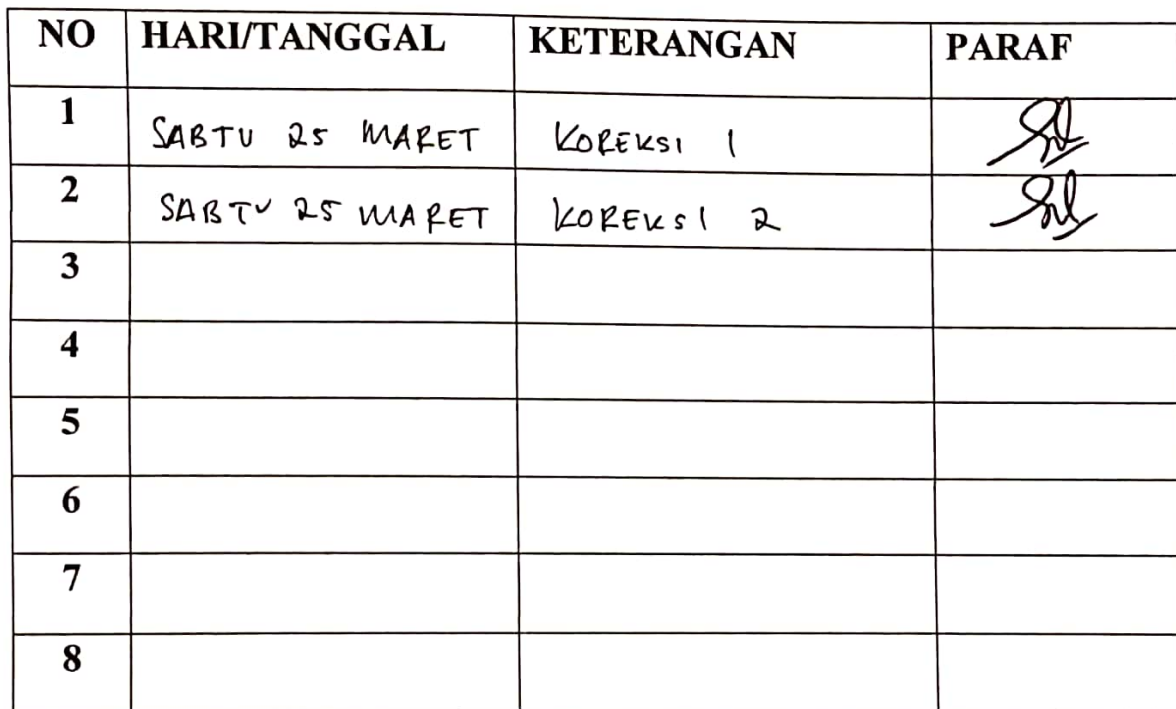 NO HARI/TANGGAL KETERANGAN PARAF
1 SABTU 25 MARET KOREKSI 1
2 SABTU 25 MARET KOREKSI 2
3
4
5
6
7
8